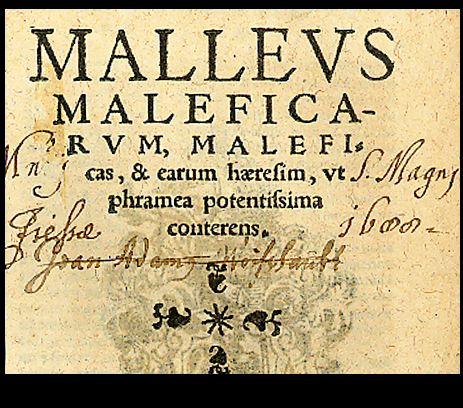 MALLEVS
MALEFICA-
RVM, MALEFI-
cas, & earum hæresim, vt
phramea potentissima
conterens.
S. Magni
Fießæ
1600
Joan Adam